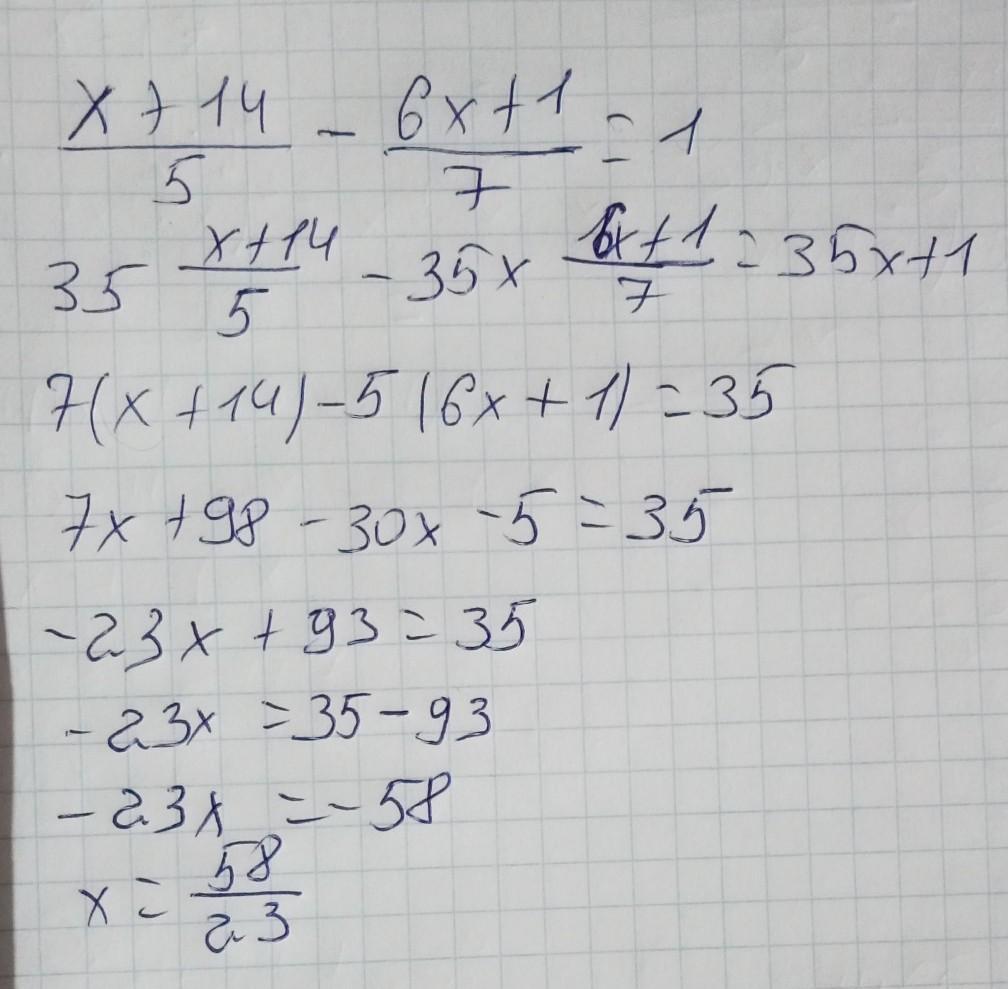 (x+14)/5 - (6x+1)/7 = 1
35 (x+14)/5 - 35x (6x+1)/7 = 35x+1
7(x+14)-5(6x+1)=35
7x+98-30x-5=35
-23x+93=35
-23x=35-93
-23x=-58
x=58/23